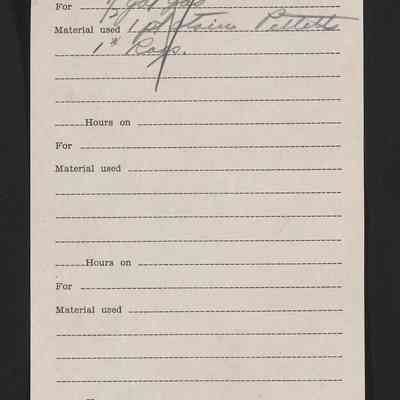 For ½ gal gas
Material used 1 pt Pellets
1# Rags.
Hours on
For
Material used
Hours on
For
Material used